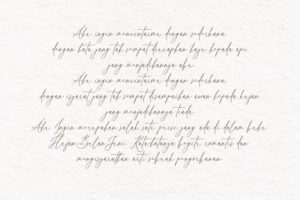 Aku ingin mencintaimu dengan sederhana
dengan kata yang tak sempat diucapkan kayu kepada api
yang menjadikannya abu
Aku ingin mencintaimu dengan sederhana
dengan isyarat yang tak sempat disampaikan awan kepada hujan
yang menjadikannya tiada
Aku Ingin merupakan salah satu puisi yang ada di dalam buku
Hujan Bulan Juni. Kata-katanya begitu romantis dan
mengisyaratkan arti sebuah pengorbanan